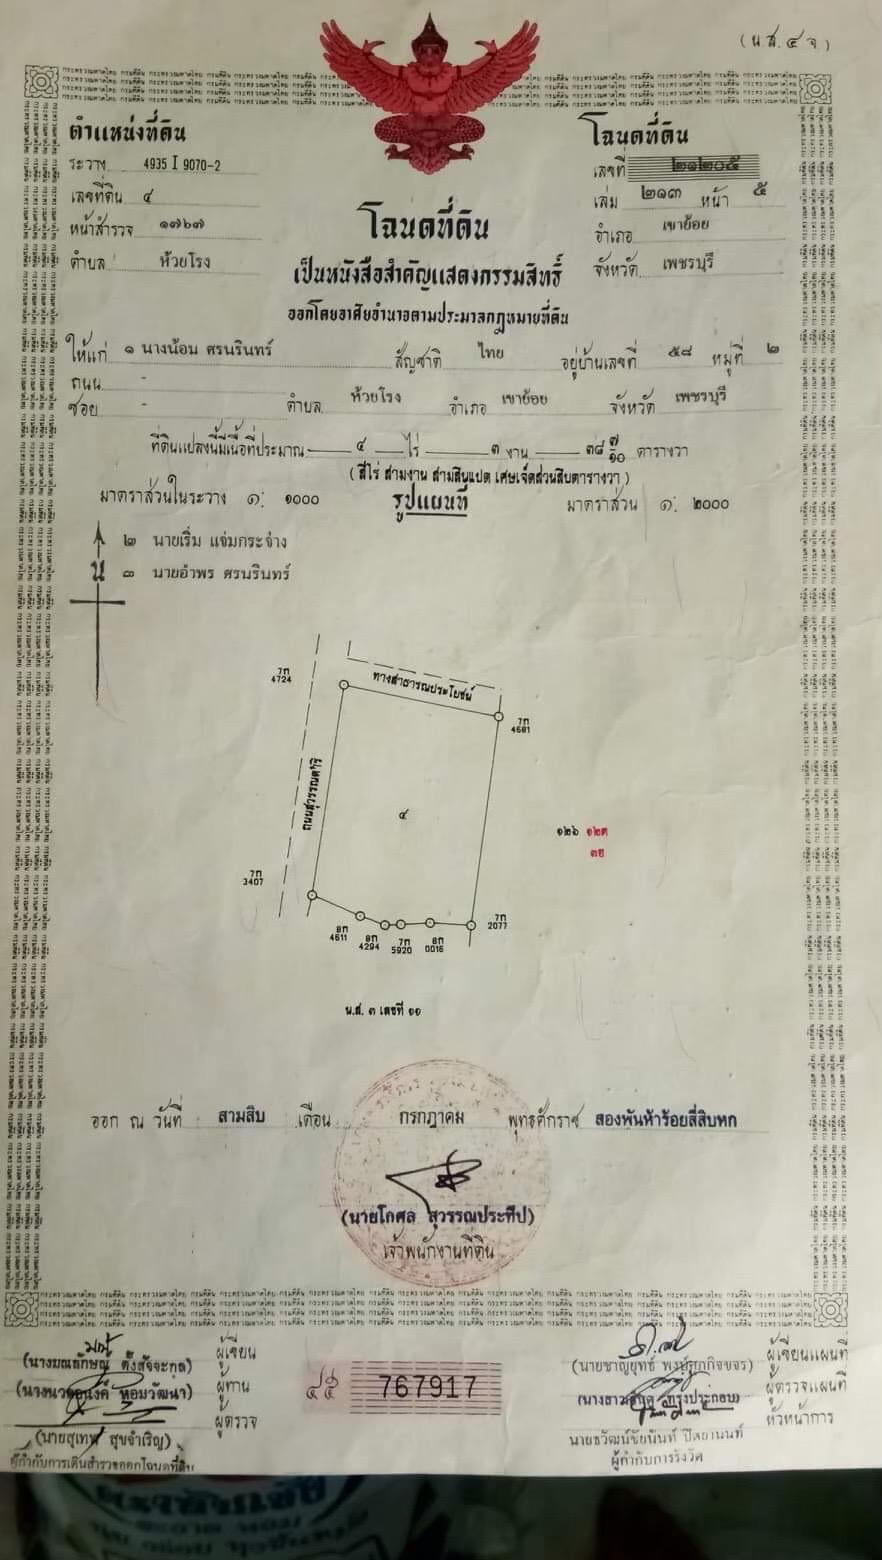 (น.ส. ๔ จ)
ตำแหน่งที่ดิน
ระวาง 4935 I 9070-2
เลขที่ดิน ๔
หน้าสำรวจ ๑๗๖๗
ตำบล ห้วยโรง
โฉนดที่ดิน
เลขที่ ๒๑๒๐๕
เล่ม ๒๑๓ หน้า ๕
อำเภอ เขาย้อย
จังหวัด เพชรบุรี
โฉนดที่ดิน
เป็นหนังสือสำคัญแสดงกรรมสิทธิ์
ออกโดยอาศัยอำนาจตามประมวลกฎหมายที่ดิน
ให้แก่ ๑ นางน้อม ศรนรินทร์ สัญชาติ ไทย อยู่บ้านเลขที่ ๕๘ หมู่ที่ ๒
ถนน -
ซอย - ตำบล ห้วยโรง อำเภอ เขาย้อย จังหวัด เพชรบุรี
ที่ดินแปลงนี้มีเนื้อที่ประมาณ ๔ ไร่ ๓ งาน ๓๘ ๗/๑๐ ตารางวา
(สี่ไร่ สามงาน สามสิบแปด เศษเจ็ดส่วนสิบตารางวา)
มาตราส่วนในระวาง ๑: ๑๐๐๐ รูปแผนที่ มาตราส่วน ๑: ๒๐๐๐
๒ นายเริ่ม แจ่มกระจ่าง
น ๓ นายอำพร ศรนรินทร์
7ก
4724
ทางสาธารณประโยชน์
7ก
4681
ถนนสุวรรณดาริ
๔
๑๒๖ ๑๒๓
7ก
3407
8ก
4611
8ก
4294
7ก
5920
8ก
0016
7ก
2077
น.ส. ๓ เลขที่ ๑๑
ออก ณ วันที่ สามสิบ เดือน กรกฎาคม พุทธศักราช สองพันห้าร้อยสี่สิบหก
(นายโกศล สุวรรณประทีป)
เจ้าพนักงานที่ดิน
(นางมณลักษณ์ ตั้งสัจจะกุล) ผู้เขียน
ผู้ทาน
ผู้ตรวจ
(นายสุเทพ สุขจำเริญ)
ผู้กำกับการเดินสำรวจออกโฉนดที่ดิน
๔๕ 767917
ผู้เขียนแผนที่
ผู้ตรวจแผนที่
หัวหน้าการ
นายธวัฒน์ชัยนันท์ ปิตยานนท์
ผู้กำกับการรังวัด